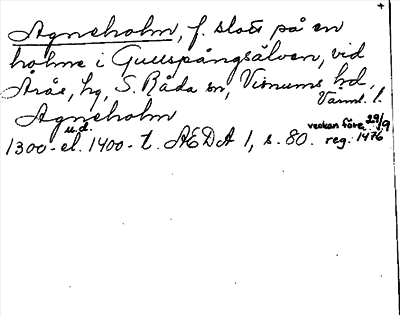 Agneholm, f. slott på en
holme i Gullspångsälven, vid
Årås, hg, S. Råda sn, Visnums hd,
Värml. l.
Agneholm
u.d. veckan före 29/9
1300- el. 1400-t. ÆDA 1, s. 80. reg. 1476